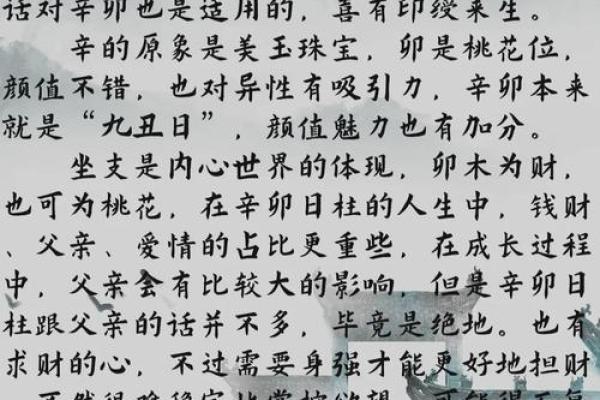 话对辛卯也是适用的，喜有印绶来生。
辛的原象是美玉珠宝，卯是桃花位，
颜值不错，也对异性有吸引力，辛卯本来
就是“九丑日”，颜值魅力也有加分。
坐支是内心世界的体现，卯木为财，
也可为桃花，在辛卯日柱的人生中，钱财
、父亲、爱情的占比更重些，在成长过程
中，父亲会有比较大的影响，但是辛卯日
柱跟父亲的话并不多，毕竟是绝地。也有
求财的心，不过需要身强才能更好地担财